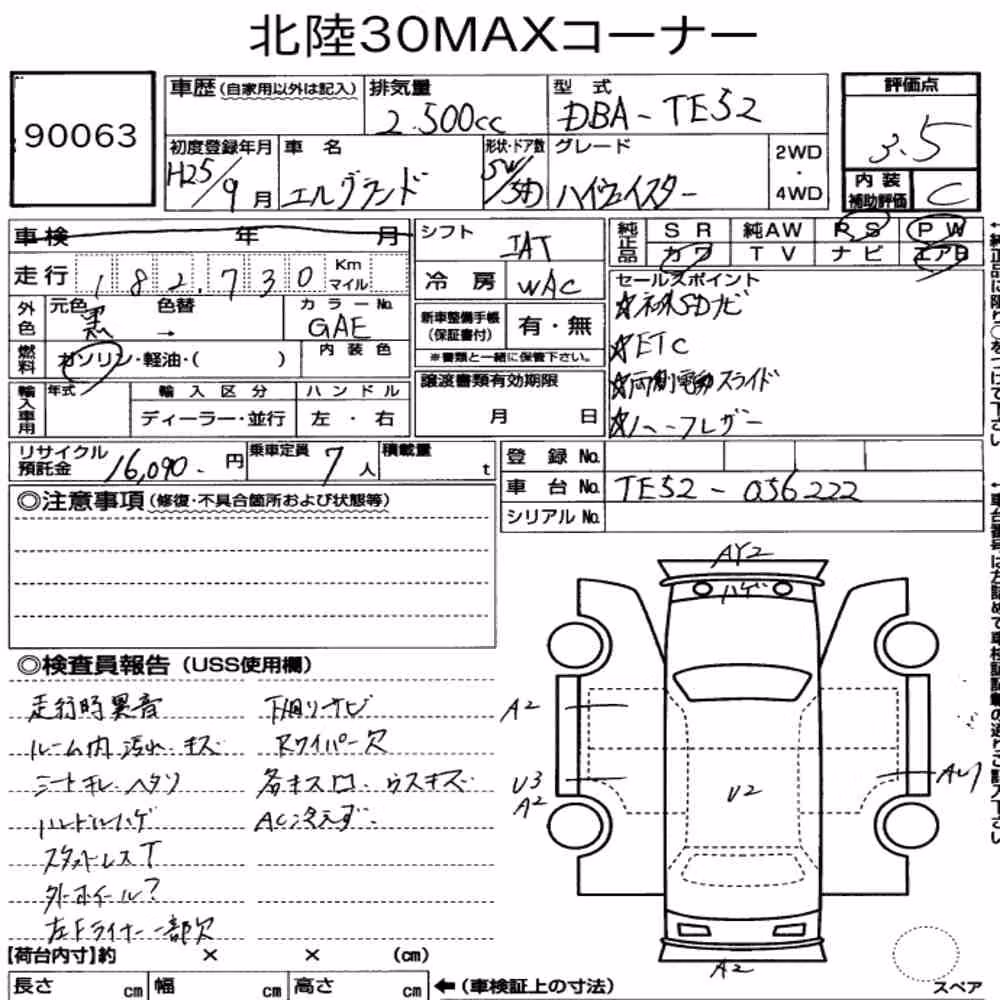 北陸30MAXコーナー
90063
車歴 (自家用以外は記入)
排気量
2.500cc
型 式
DBA-TE52
評価点
3.5
初度登録年月
H25/9月
車 名
エルグランド
形状・ドア数
SW/5D
グレード
ハイウェイスター
2WD
・
4WD
内 装
補助評価
C
車検 年 月
シフト
IAT
純正品
SR 純AW PS PW
カワ TV ナビ エアB
走行 182.730 Km マイル
冷 房
WAC
セールスポイント
☆社外SDナビ
☆ETC
☆両側電動スライド
☆ハーフレザー
外色
元色 色替
黒 →
カラーNo.
GAE
新車整備手帳
(保証書付)
有・無
※書類と一緒に保管下さい。
燃料
ガソリン・軽油・( )
内 装 色
輸入車用
年式
輸 入 区 分
ディーラー・並行
ハ ン ド ル
左 ・ 右
譲渡書類有効期限
月 日
リサイクル
預託金
16,090.円
乗車定員
7人
積載量
t
登 録 No.
車 台 No.
TE52-056222
シリアル No.
◎注意事項 (修復・不具合箇所および状態等)
◎検査員報告 (USS使用欄)
走行時異音
ルーム内 汚れ キズ
シートキレ ヘタリ
ハンドルハゲ
スタットレスT
外ホイール?
左Fライナー一部欠
下廻りサビ
Rワイパー欠
各キズロ、ウスキズ
AC冷えず.
AY2
ハゲ
A2
U3
A2
U2
A2
スペア
【荷台内寸】約 × × (cm)
長さ cm 幅 cm 高さ cm
←(車検証上の寸法)